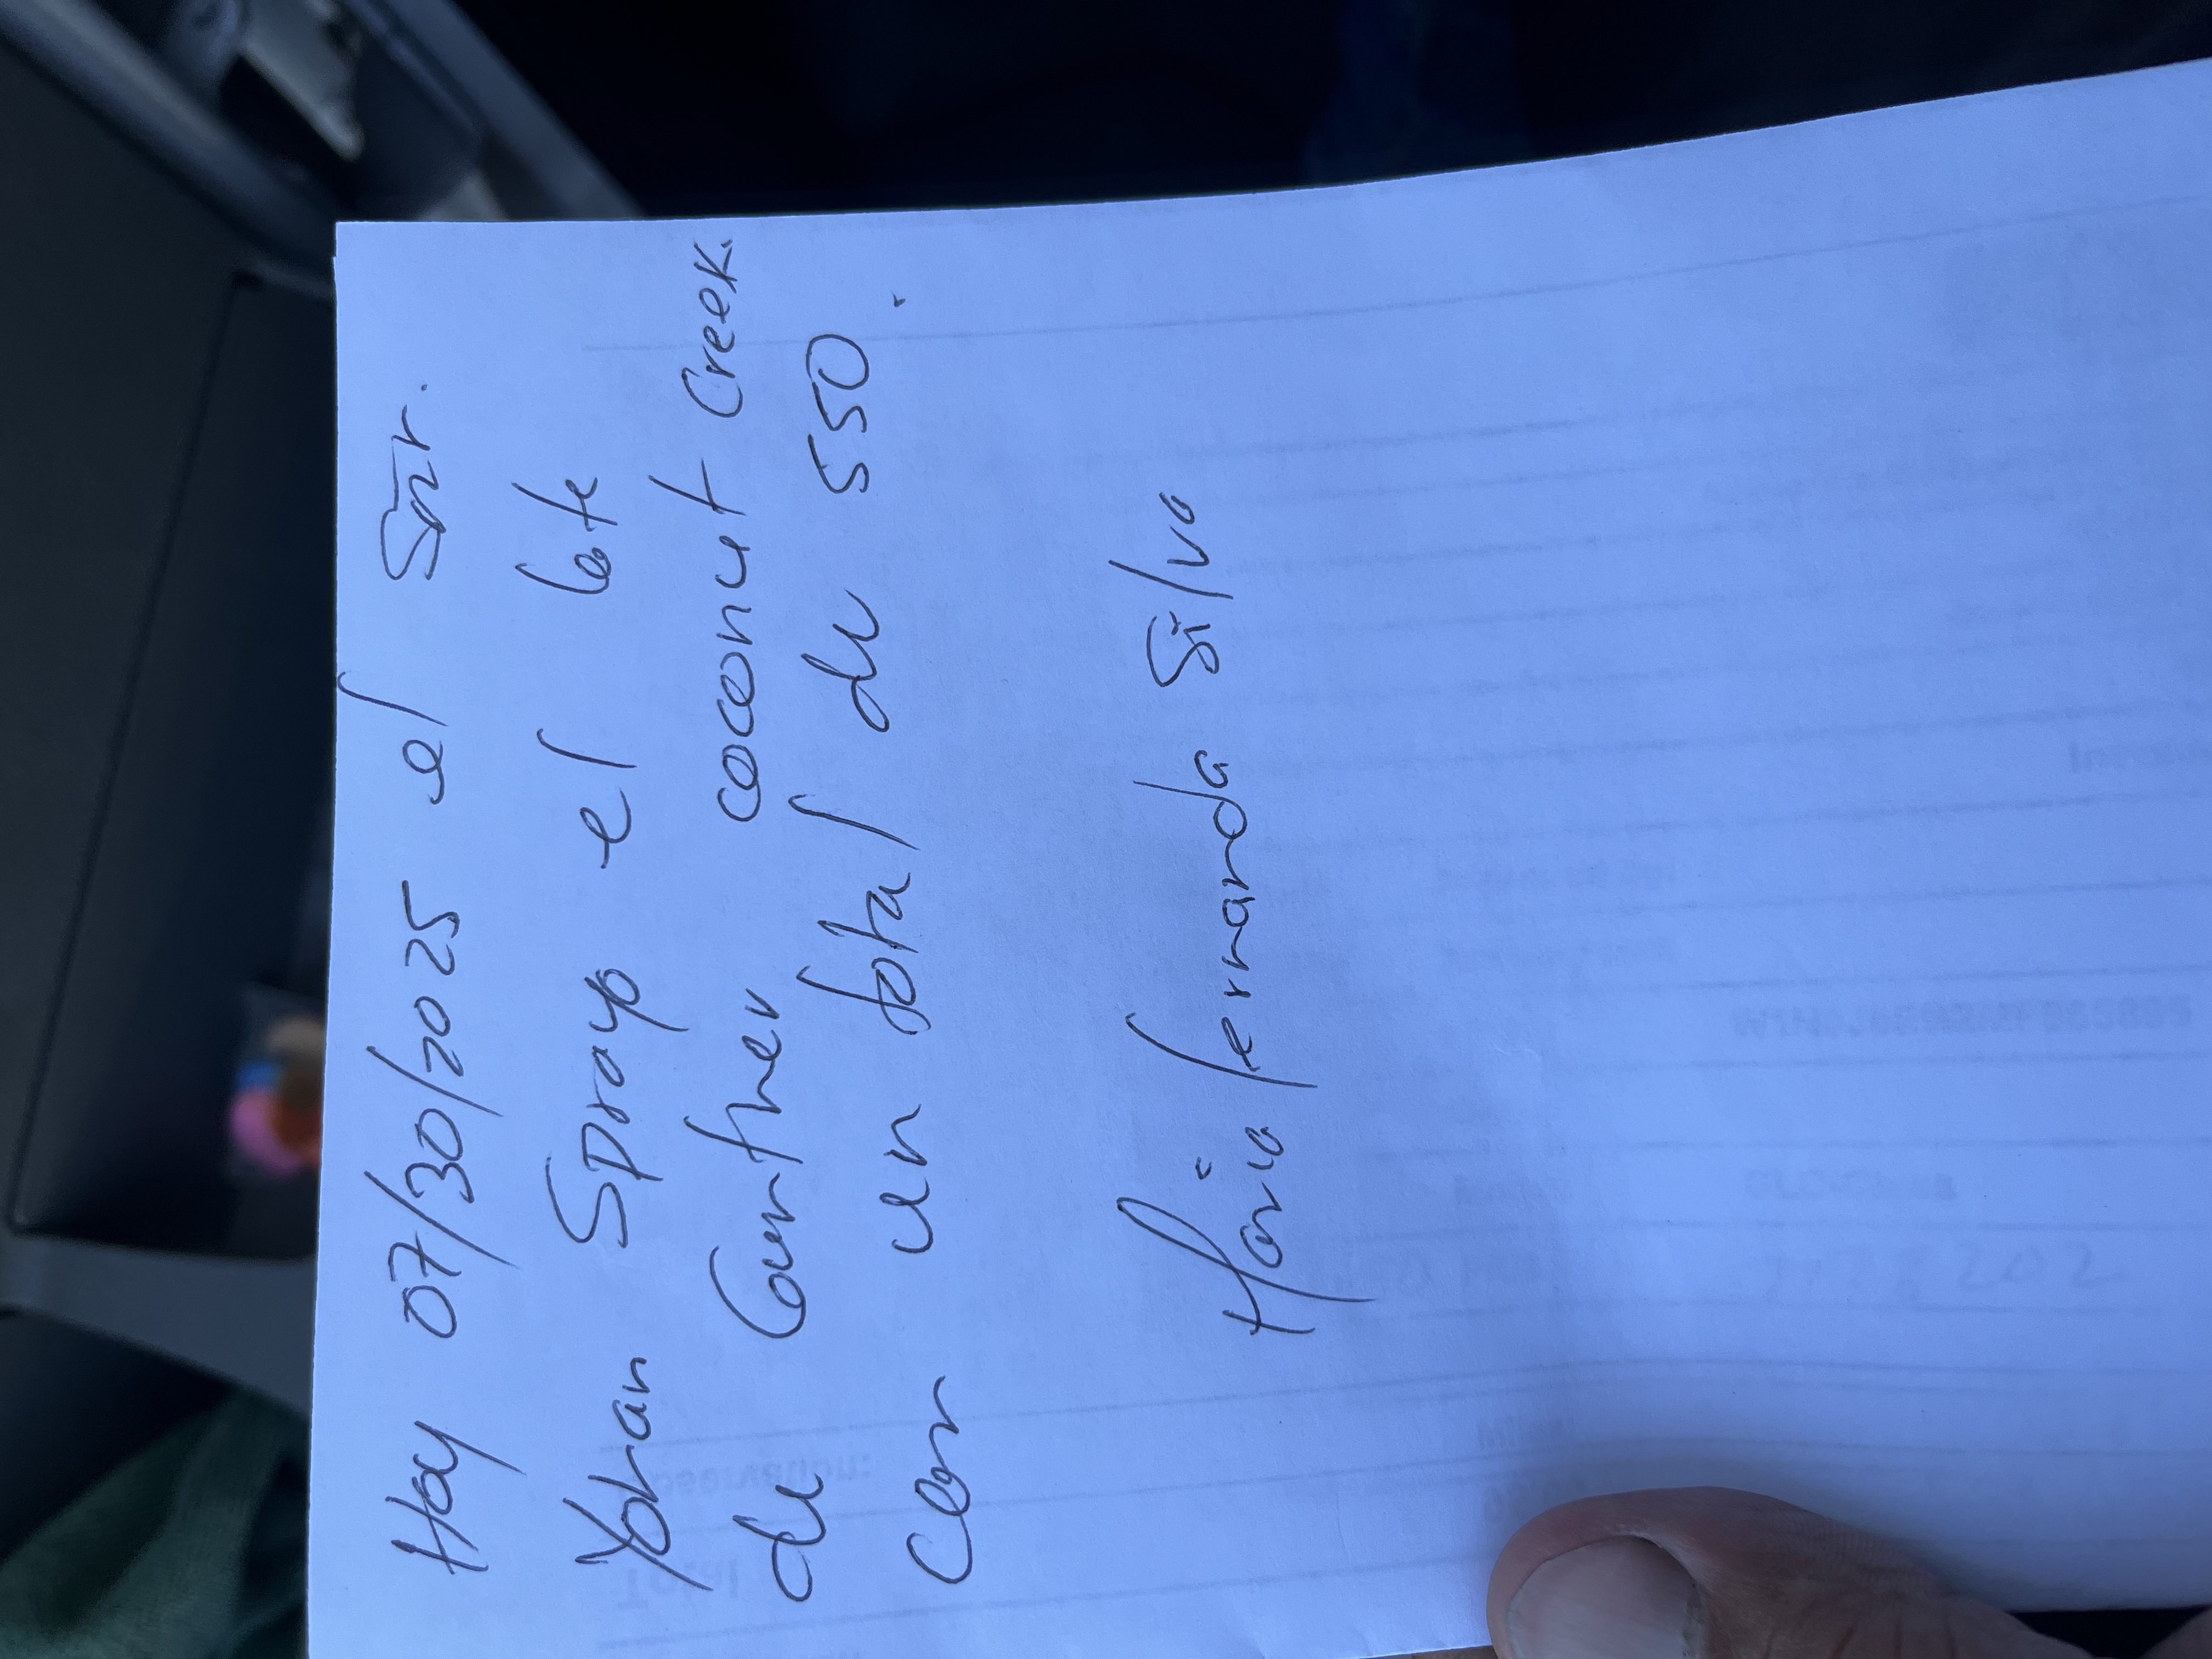 Hoy 07/30/2025 el Snr.
Yohan Sprayo el lote
de Courtney coconut Creek.
Con un total de 550.
Maria fernanda Silva